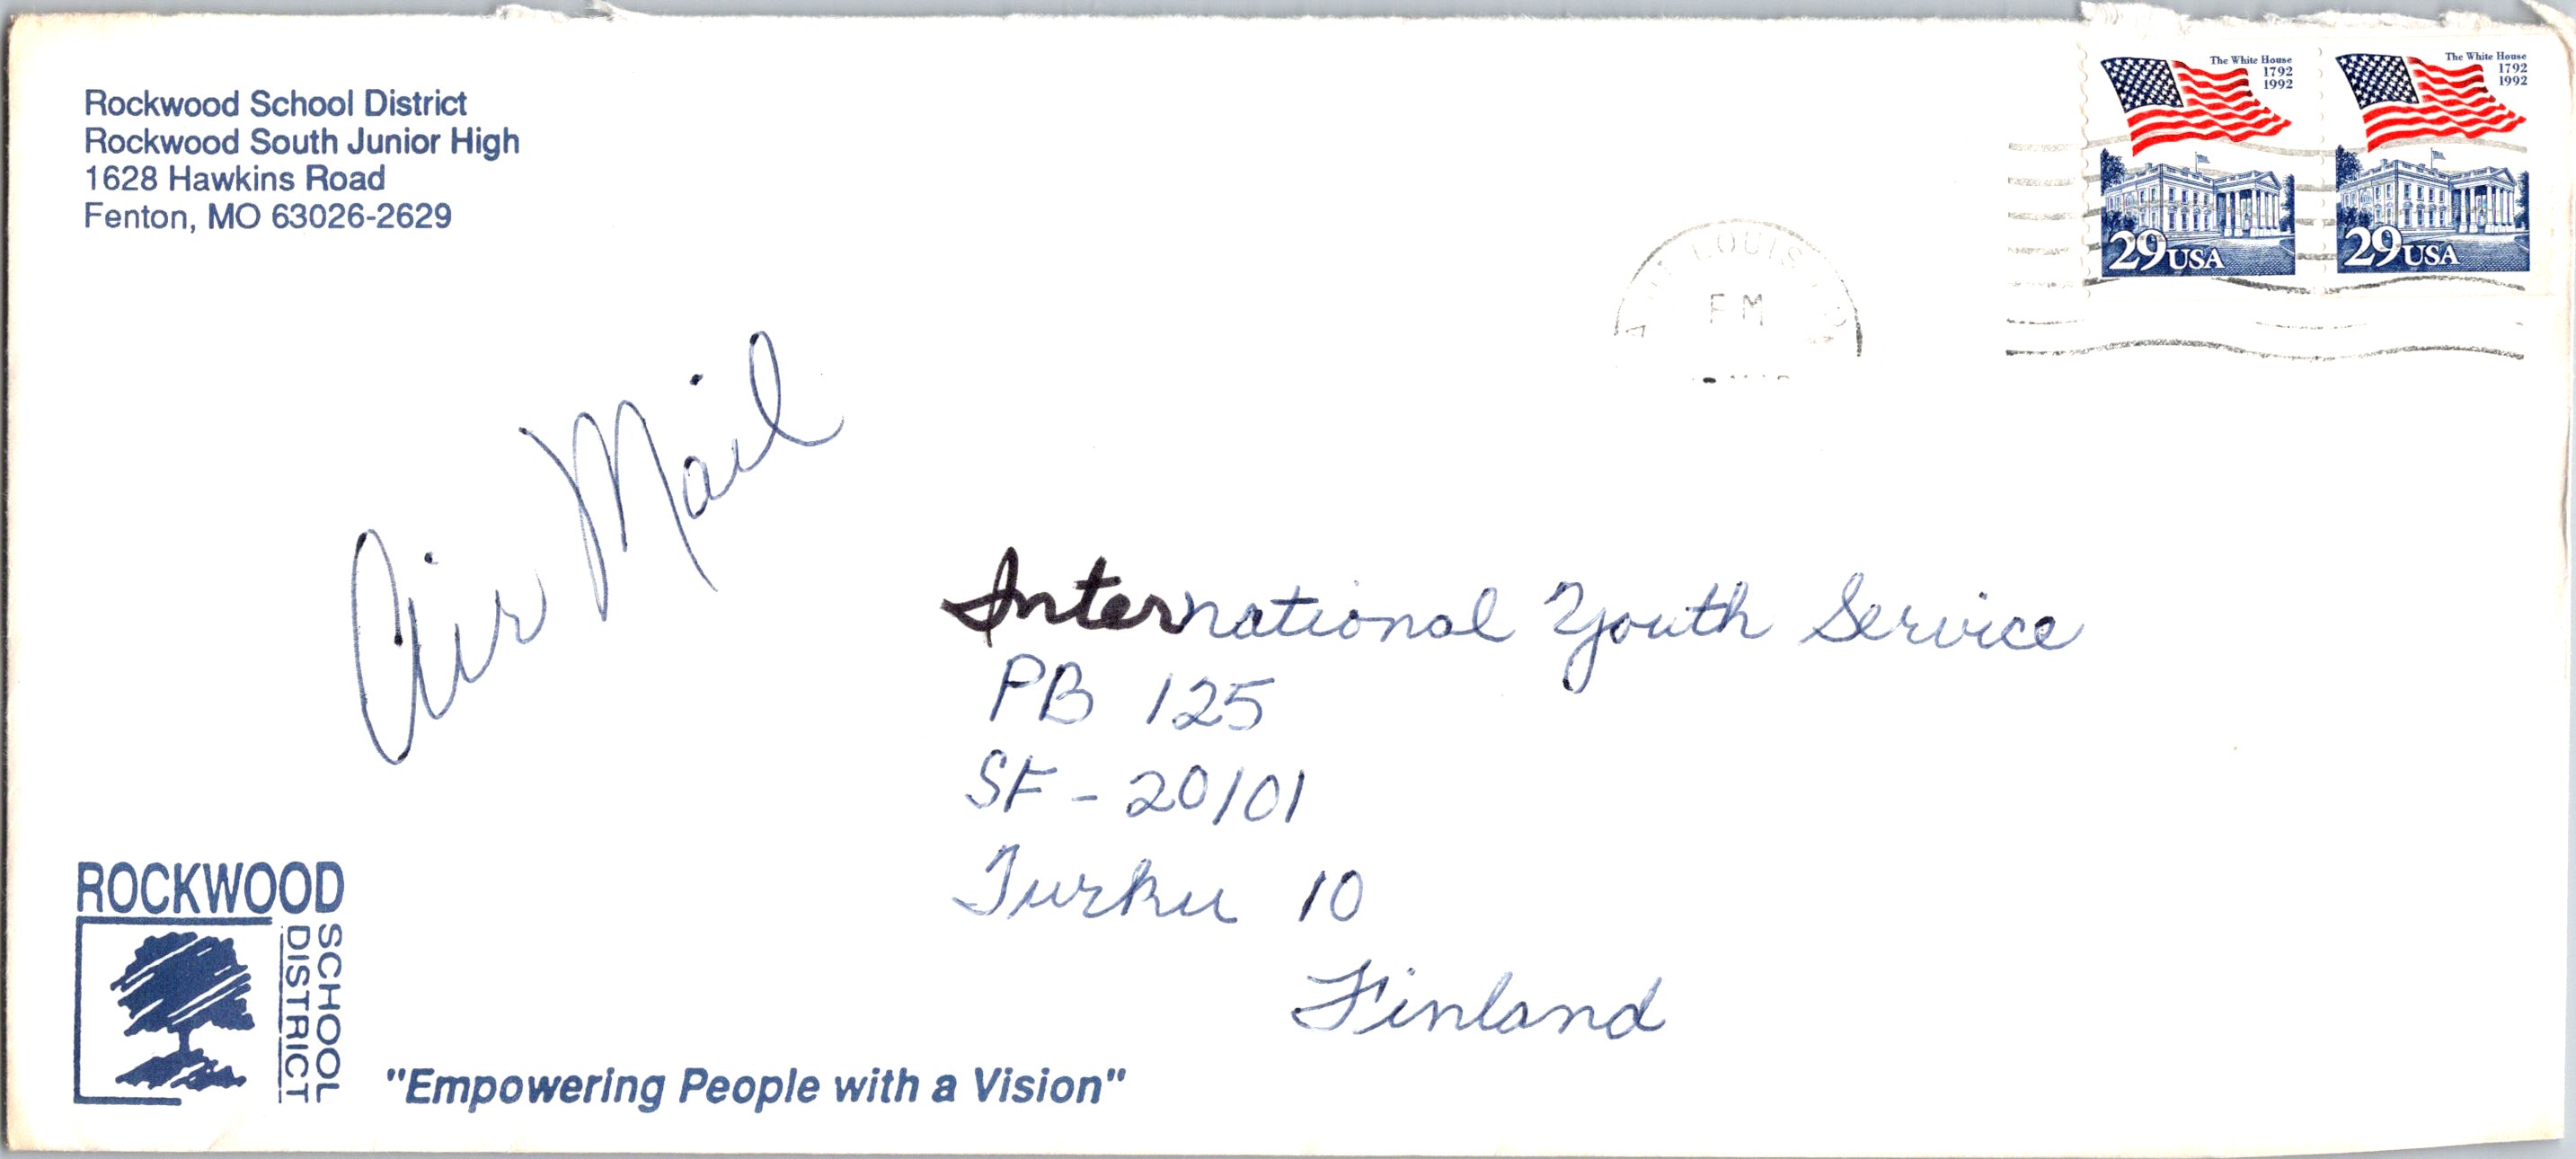 Rockwood School District
Rockwood South Junior High
1628 Hawkins Road
Fenton, MO 63026-2629
The White House
1792
1992
29 USA
The White House
1792
1992
29 USA
LOUIS
PM
Air Mail
International Youth Service
PB 125
SF - 20101
Turku 10
Finland
ROCKWOOD
SCHOOL
DISTRICT
"Empowering People with a Vision"